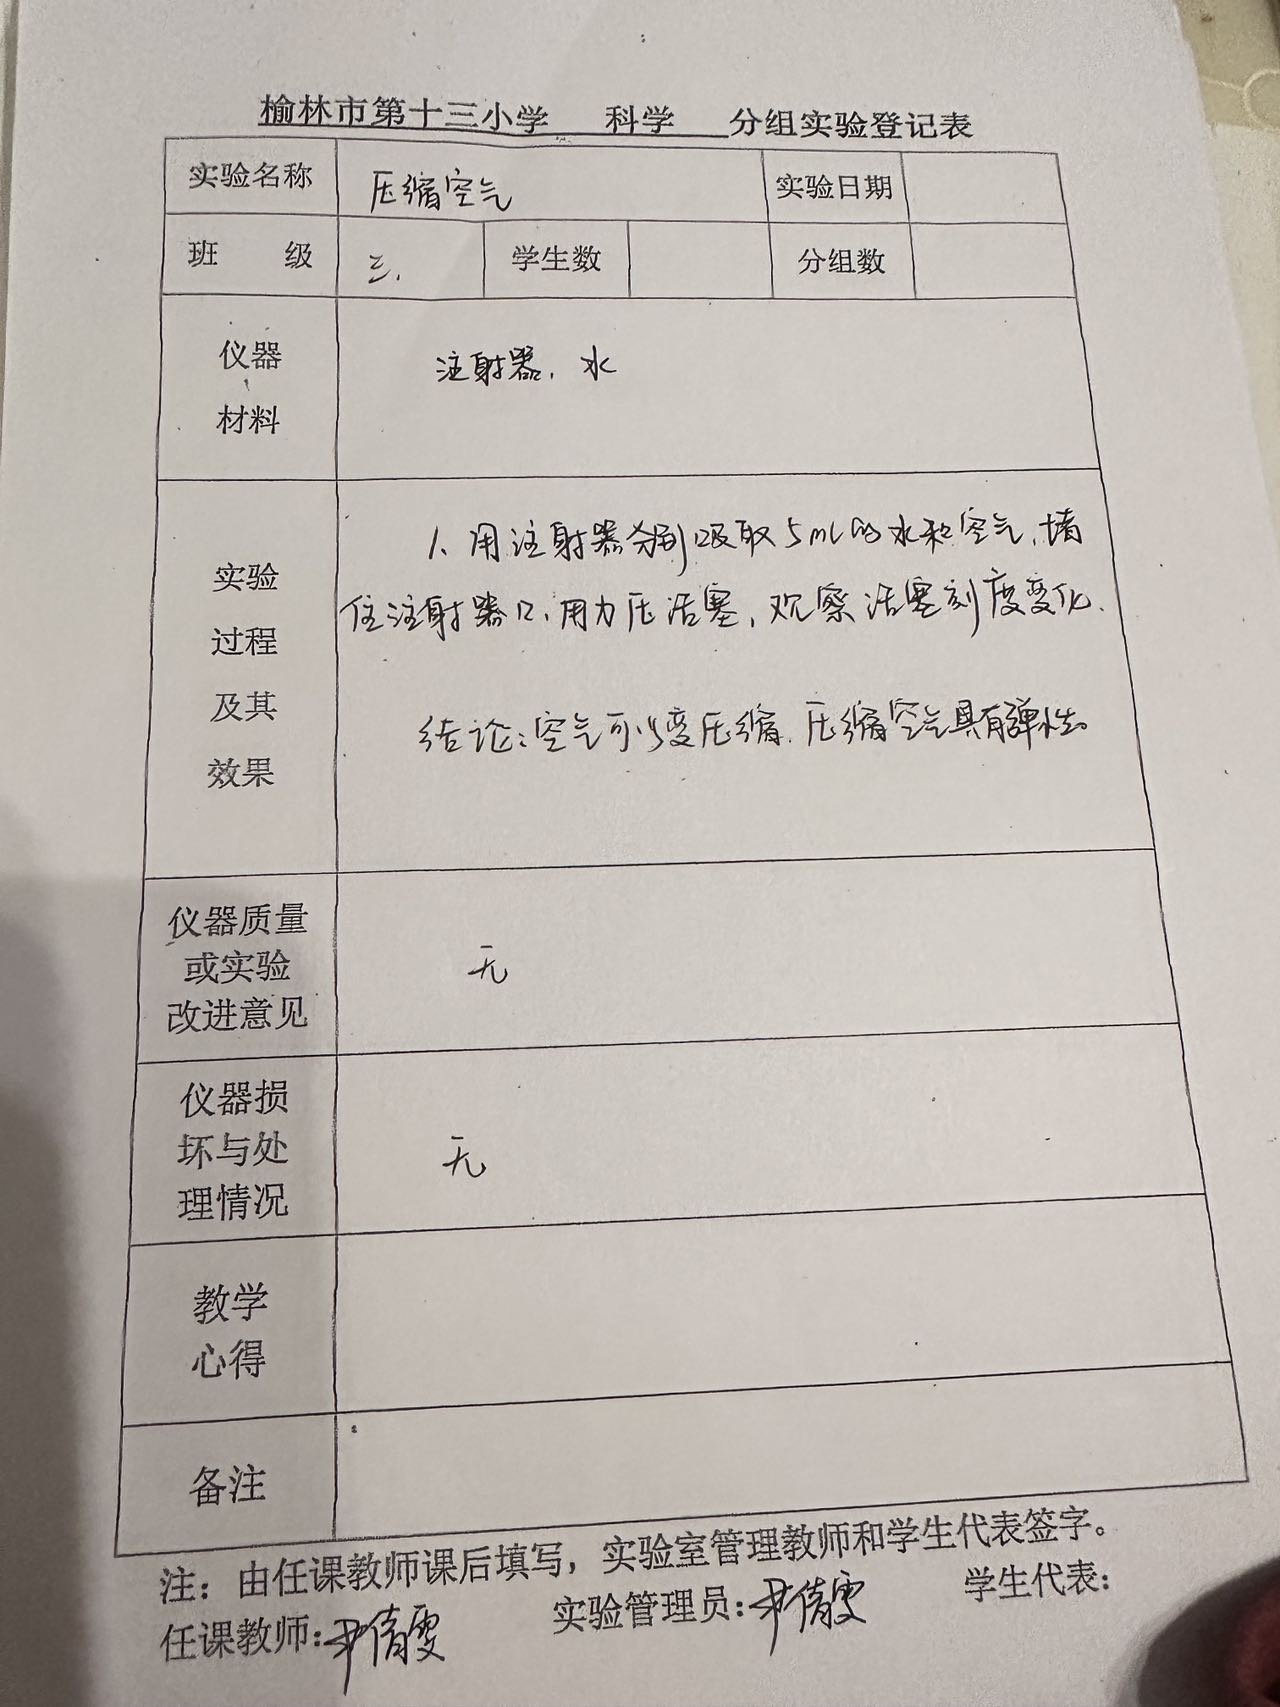 榆林市第十三小学 科学 分组实验登记表
实验名称 压缩空气 实验日期
班 级 三. 学生数 分组数
仪器
材料
注射器. 水
实验
过程
及其
效果
1. 用注射器分别吸取5ml的水和空气,堵
住注射器口,用力压活塞,观察活塞刻度变化.
结论:空气可以变压缩.压缩空气具有弹性。
仪器质量
或实验
改进意见
无
仪器损
坏与处
理情况
无
教学
心得
备注
注:由任课教师课后填写,实验室管理教师和学生代表签字。
任课教师:尹倩雯 实验管理员:尹倩雯 学生代表: